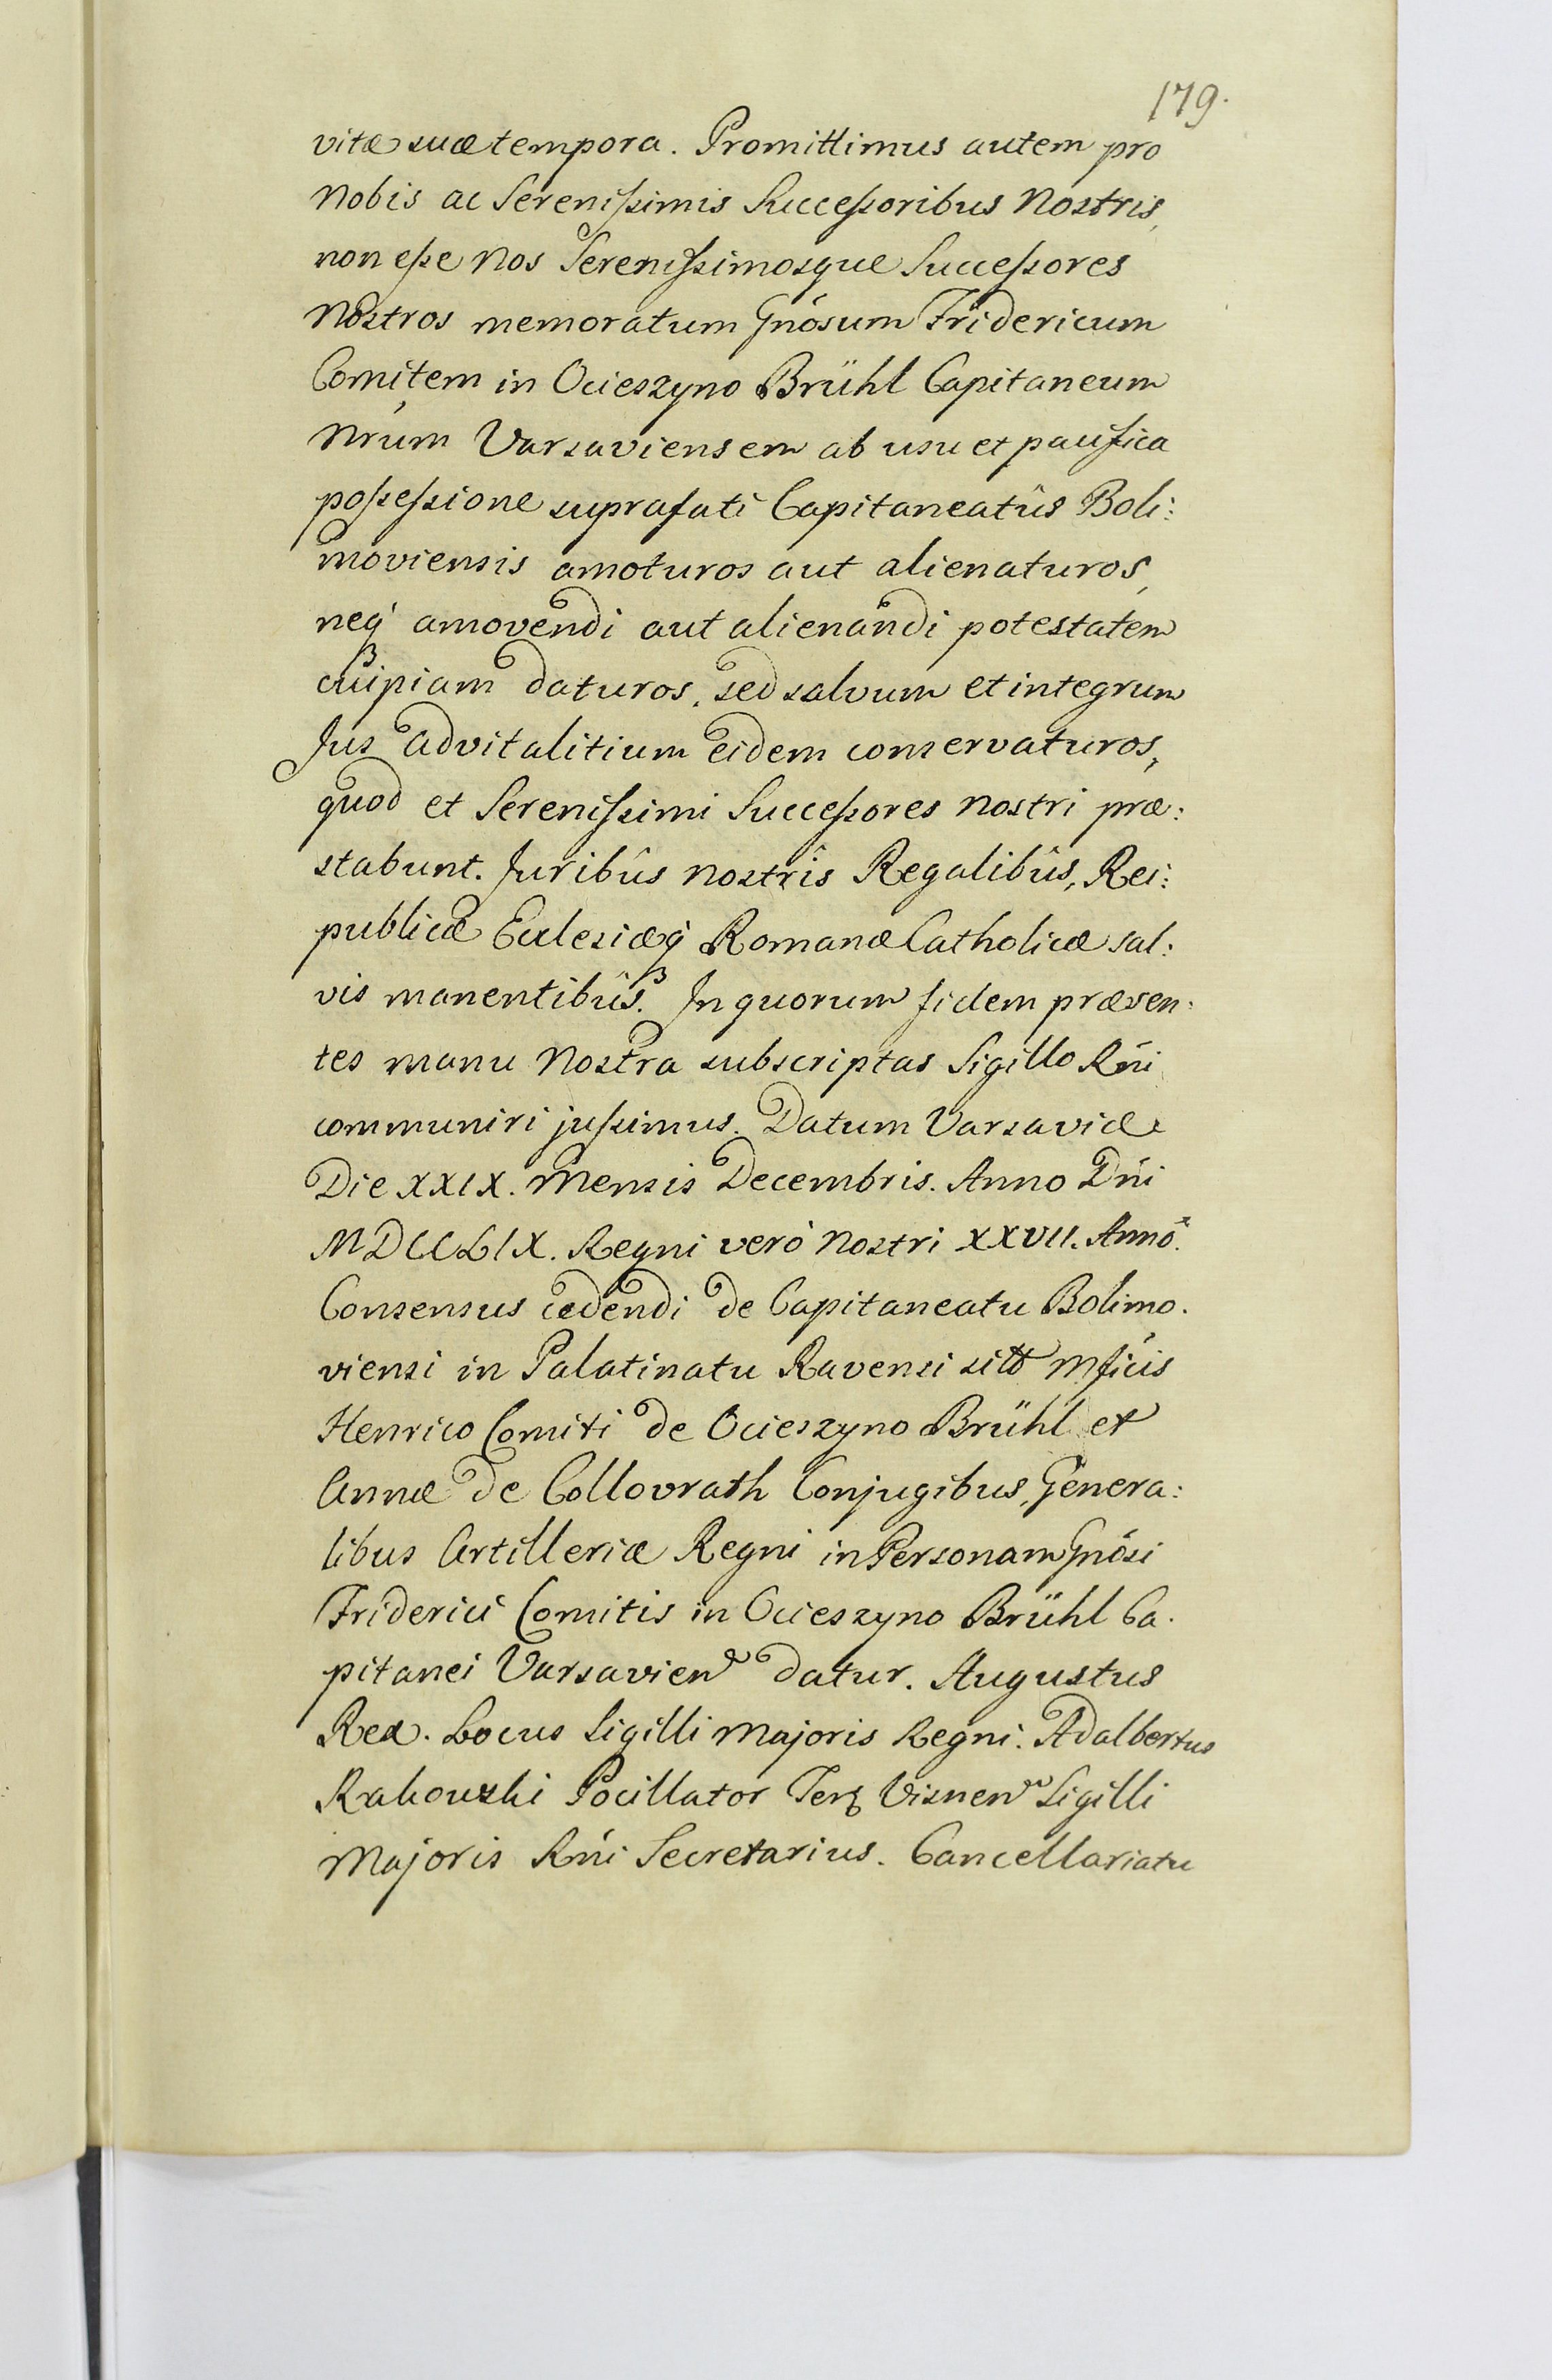 179.
vitæ suæ tempora. Promittimus autem pro
Nobis ac Serenissimis Successoribus Nostris,
non esse Nos Serenissimosque Successores
Nostros memoratum Gnosum Fridericum
Comitem in Ocieszyno Brühl Capitaneum
Nrum Varsaviensem ab usu et pacifica
possessione suprafati Capitaneatûs Boli:
moviensis amoturos aut alienaturos,
neq' amovendi aut alienandi potestatem
cuipiam daturos, sed salvum et integrum
Jus advitalitium eidem conservaturos,
quod et Serenissimi Successores Nostri præ:
stabunt. Juribûs Nostrîs Regalibûs, Rei:
publicæ Ecclesiæq' Romanæ Catholicæ sal:
vis manentibûs. In quorum fidem præsen:
tes manu Nostra subscriptas Sigillo Rni
communiri jussimus. Datum Varsaviæ
Die XXIX. Mensis Decembris. Anno Dni
MDCCLIX. Regni verò Nostri XXVII. Annô.
Consensus cedendi de Capitaneatu Bolimo.
viensi in Palatinatu Ravensi sito Mficis
Henrico Comiti de Ocieszyno Brühl et
Annæ de Collovrath Conjugibus, Genera:
libus Artilleriæ Regni in Personam Gnosi
Friderici Comitis in Ocieszyno Brühl Ca.
pitanei Varsavien datur. Augustus
Rex. Locus Sigilli Majoris Regni. Adalbertus
Rakowski Pocillator Terr Visnen Sigilli
Majoris Rni Secretarius. Cancellariatu